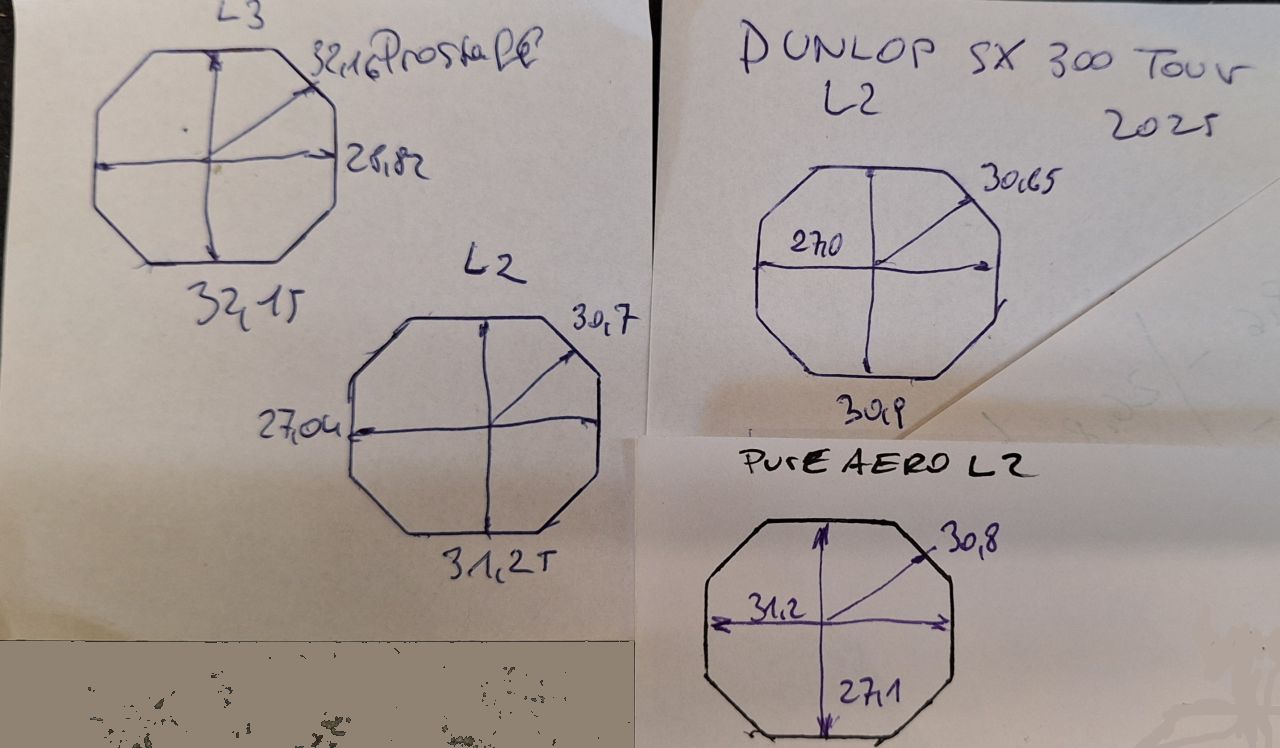 L3
32,16
28,82
32,15
L2
30,7
27,04
31,25
DUNLOP SX 300 Tour
L2
2025
30,65
27,0
30,9
PURE AERO L2
30,8
31,2
27,1